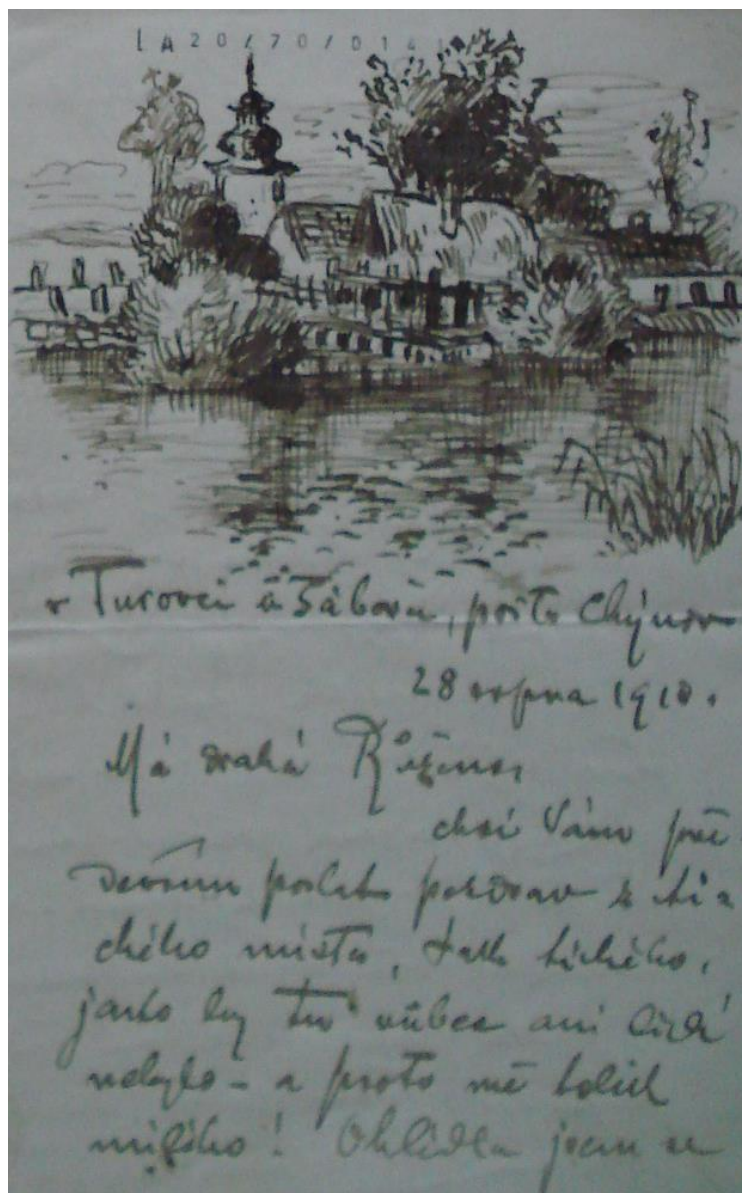 LA20/70/0141
v Turovci u Tábora, pošta Chýnov
28 srpna 1910.
Má drahá Růženo,
chci Vám pře
devším poslat pozdrav z ti
chého místa, tak tichého,
jako by tu vůbec ani lidí
nebylo – a proto mě tolik
milého! Ohlédla jsem se